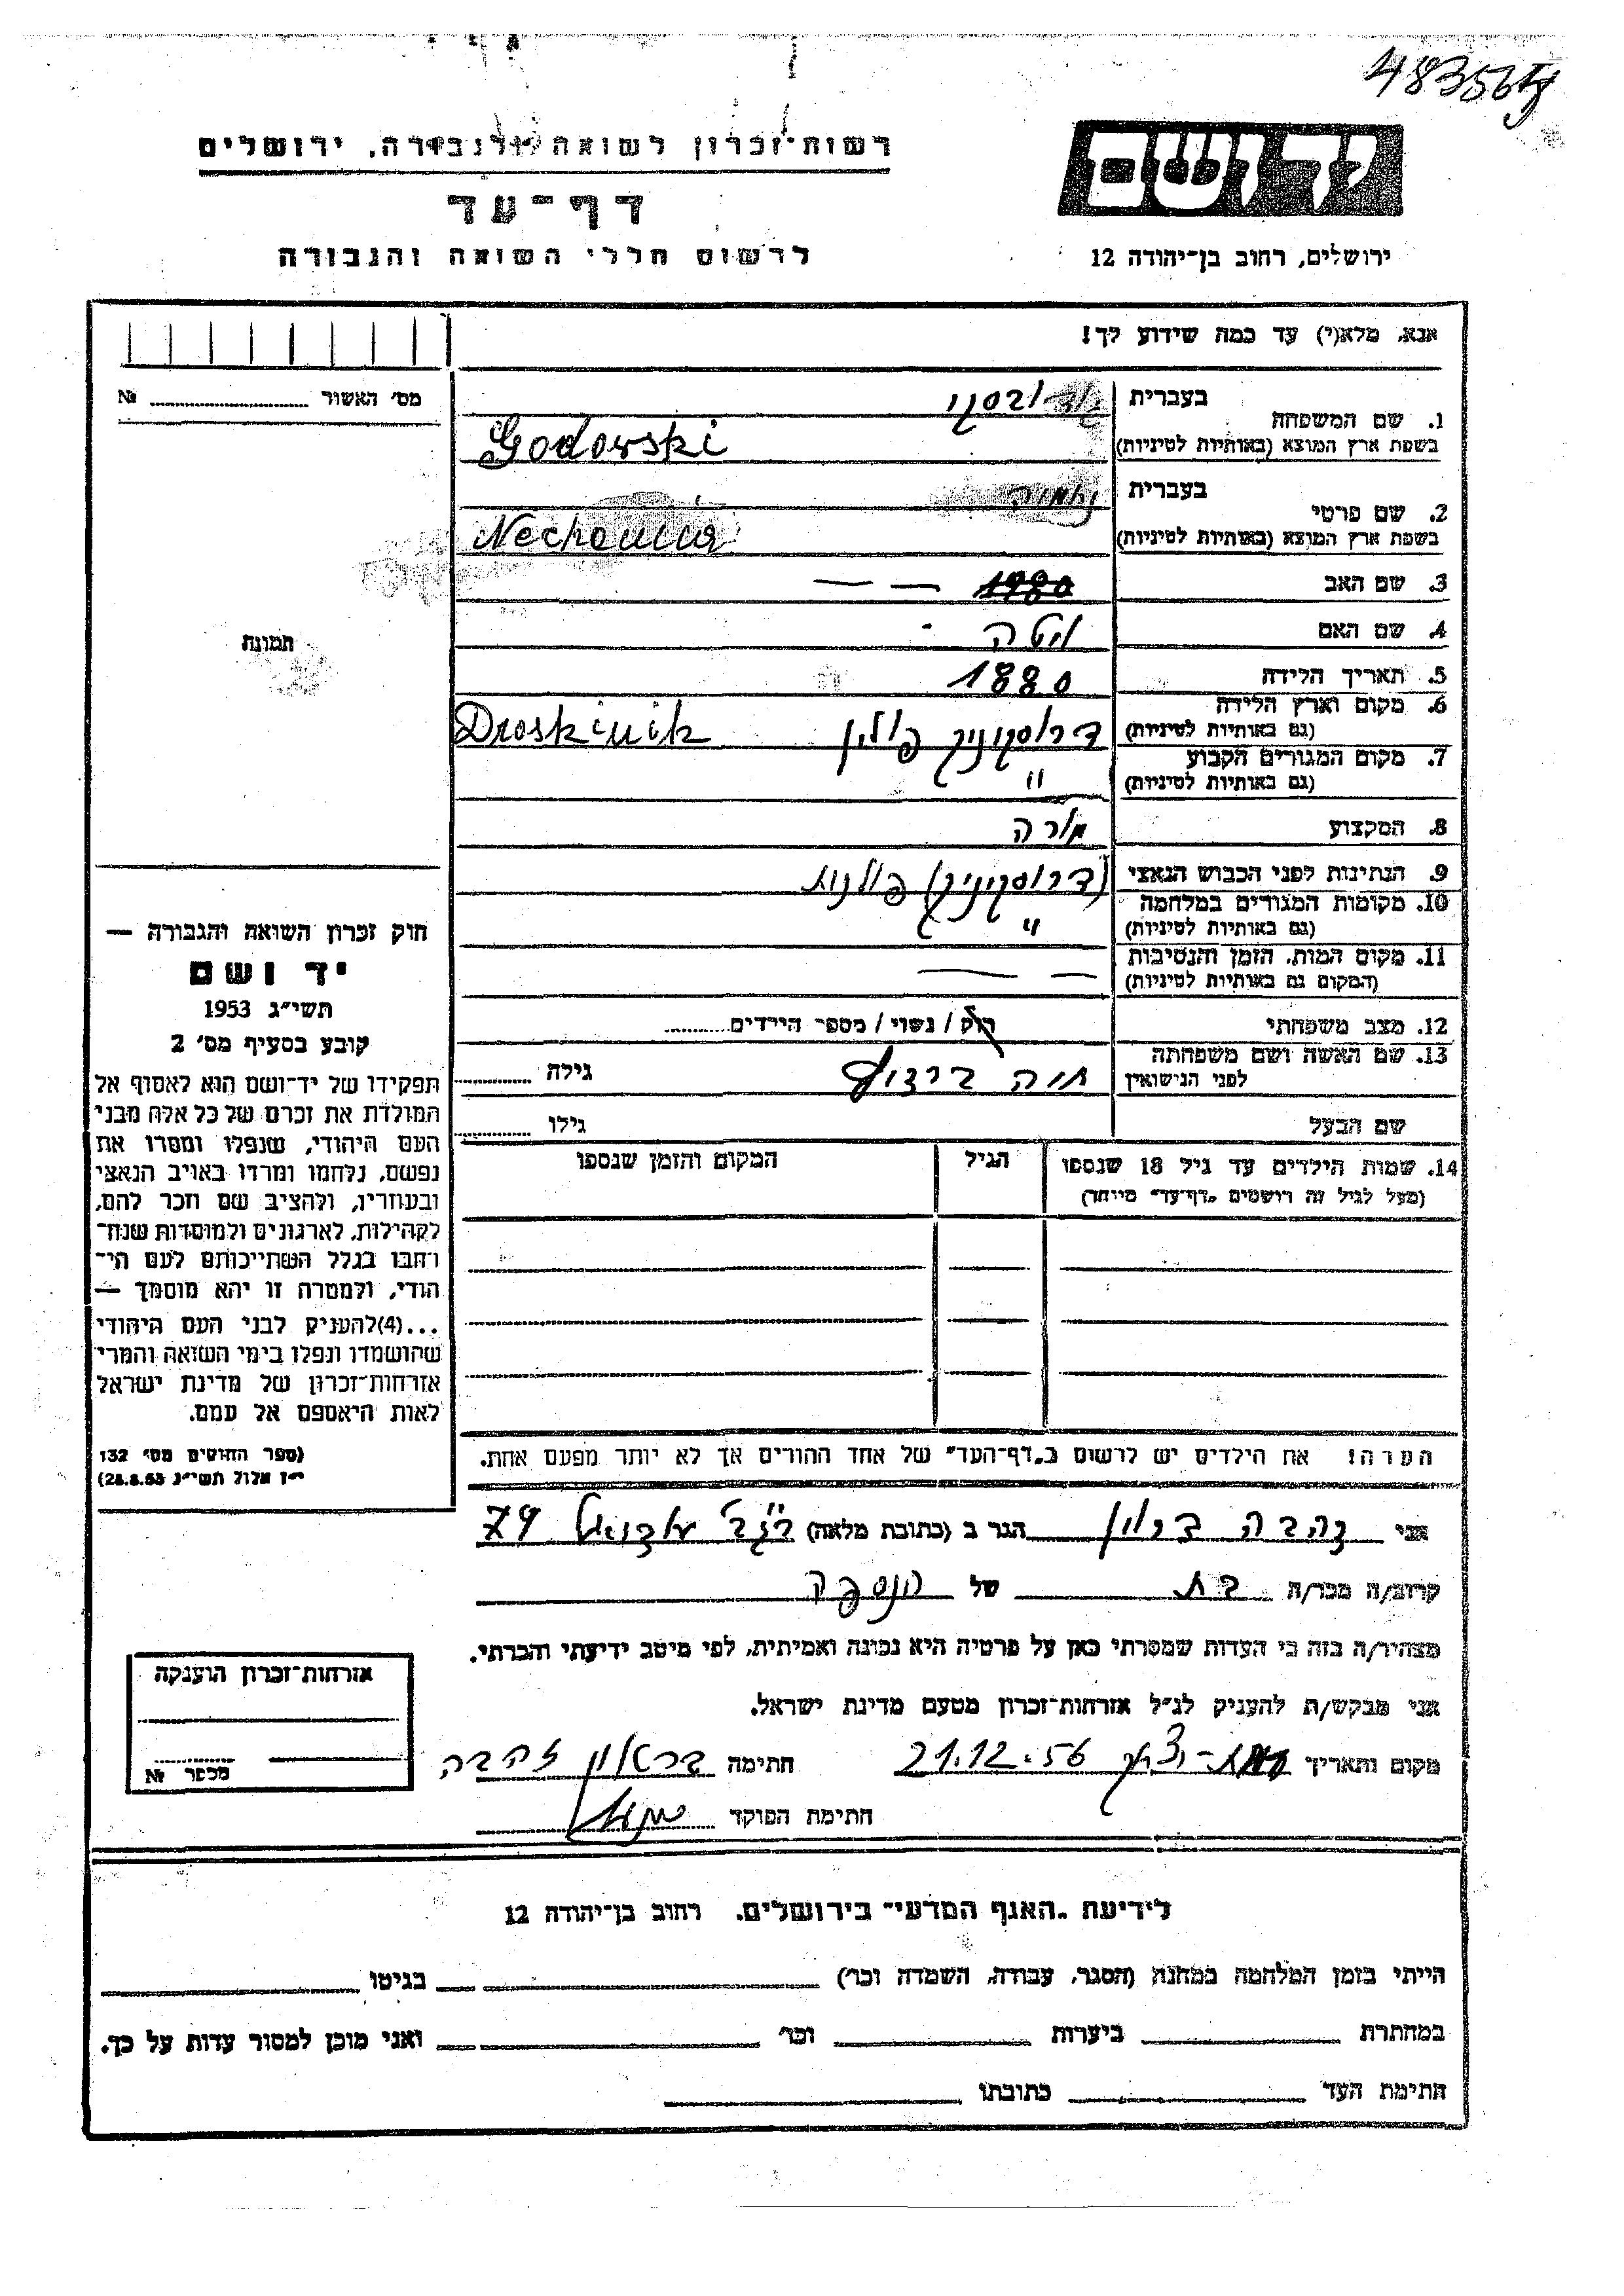 רשות-זכרון לשואה ולגבורה, ירושלים
דף-עד
לרשום חללי השואה והגבורה
יד ושם
ירושלים, רחוב בן-יהודה 12
אנא, מלא(י) עד כמה שידוע לך!
מס' האשור № 
1. שם המשפחה
בעברית
בשפת ארץ המוצא (באותיות לטיניות) Godovski
2. שם פרטי
בעברית נחמיה
בשפת ארץ המוצא (באותיות לטיניות) Nechamia
3. שם האב 1980 — —
4. שם האם
5. תאריך הלידה 1880
6. מקום וארץ הלידה
(גם באותיות לטיניות) דרוסקיניק פולין Droskinik
7. מקום המגורים הקבוע
(גם באותיות לטיניות) "
8. המקצוע מורה
9. הנתינות לפני הכבוש הנאצי (דרוסקיניק) פולנית
10. מקומות המגורים במלחמה
(גם באותיות לטיניות) "
11. מקום המות, הזמן והנסיבות
(המקום גם באותיות לטיניות) — —
12. מצב משפחתי רוק / נשוי / מספר הילדים
13. שם האשה ושם משפחתה
לפני הנישואין חיה גילה
שם הבעל גילו
14. שמות הילדים עד גיל 18 שנספו הגיל המקום והזמן שנספו
(מעל לגיל זה רושמים "דף-עד" מיוחד)
הערה! את הילדים יש לרשום ב"דף-העד" של אחד ההורים אך לא יותר מפעם אחת.
תמונה
חוק זכרון השואה והגבורה —
יד ושם
תשי"ג 1953
קובע בסעיף מס' 2
תפקידו של יד-ושם הוא לאסוף אל
המולדת את זכרם של כל אלה מבני
העם היהודי, שנפלו ומסרו את
נפשם, נלחמו ומרדו באויב הנאצי
ובעוזריו, ולהציב שם וזכר להם,
לקהילות, לארגונים ולמוסדות שנח-
רבו בגלל השתייכותם לעם הי-
הודי, ולמטרה זו יהא מוסמך —
...(4)להעניק לבני העם היהודי
שהושמדו ונפלו בימי השואה והמרי
אזרחות-זכרון של מדינת ישראל
לאות היאספם אל עמם.
(ספר החוקים מס' 132
י"ז אלול תשי"ג 28.8.53)
אני זהבה הגר ב (כתובת מלאה) 79
קרוב/ה מכר/ה בת של הנספה
מצהיר/ה בזה כי העדות שמסרתי כאן על פרטיה היא נכונה ואמיתית, לפי מיטב ידיעתי והכרתי.
אני מבקש/ת להעניק לנ"ל אזרחות-זכרון מטעם מדינת ישראל.
מקום ותאריך 21.12.56 חתימה זהבה
חתימת הפוקד
אזרחות-זכרון הוענקה
מספר №
לידיעת "האגף המדעי" בירושלים, רחוב בן-יהודה 12
הייתי בזמן המלחמה במחנה (הסגר, עבודה, השמדה וכו') בגיטו
במחתרת ביערות וכו' ואני מוכן למסור עדות על כך.
חתימת העד כתובתו